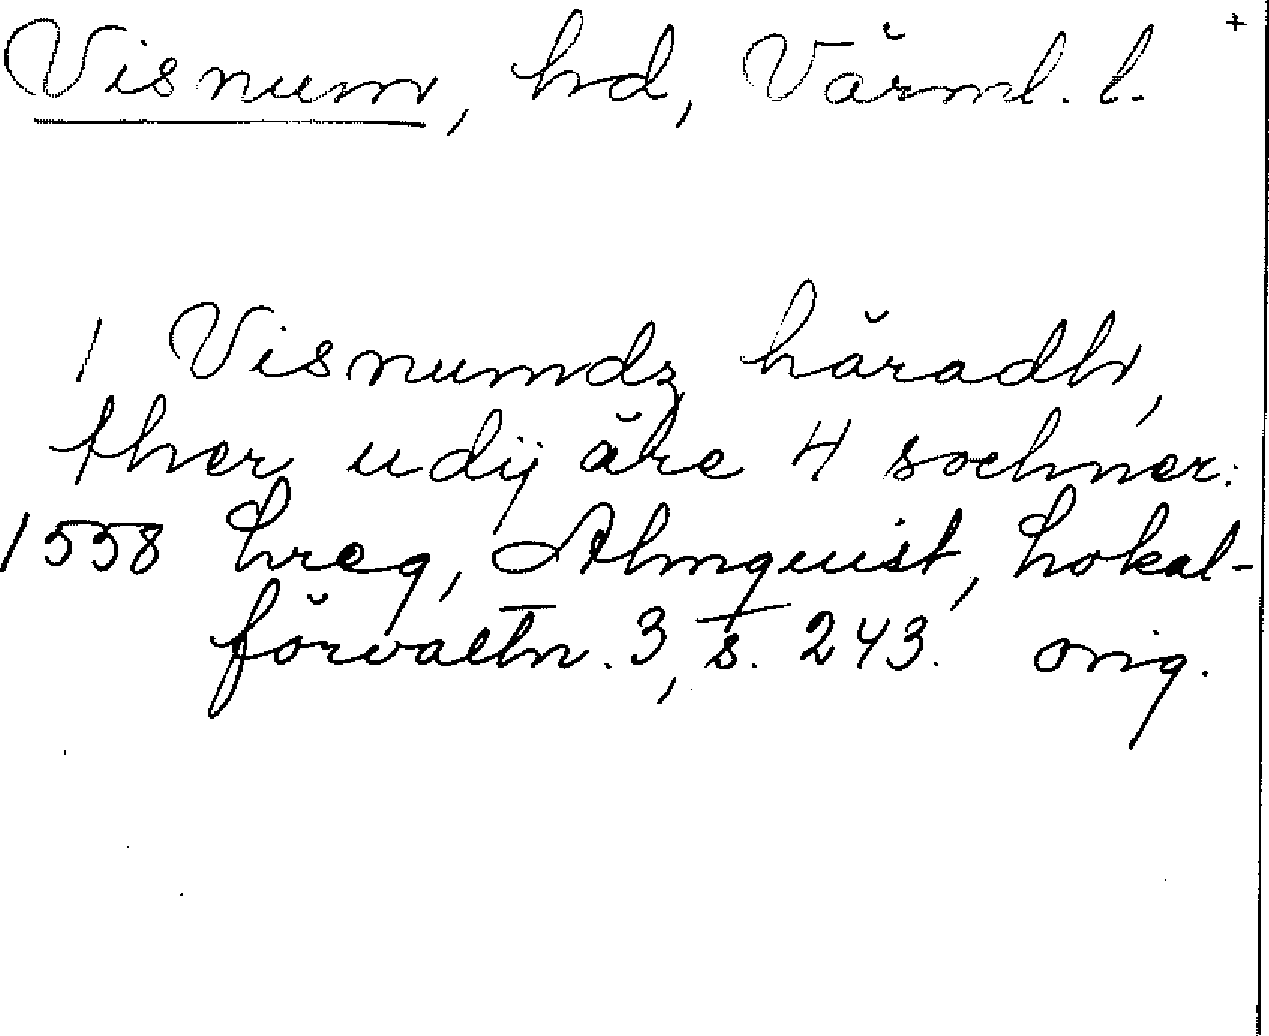 Visnum, hd, Värml. l. +
1 Visnumdz häradh,
ther udÿ äre 4 sochner:
1558 Lreg, Almquist, Lokal-
förvaltn. 3, s. 243. orig.